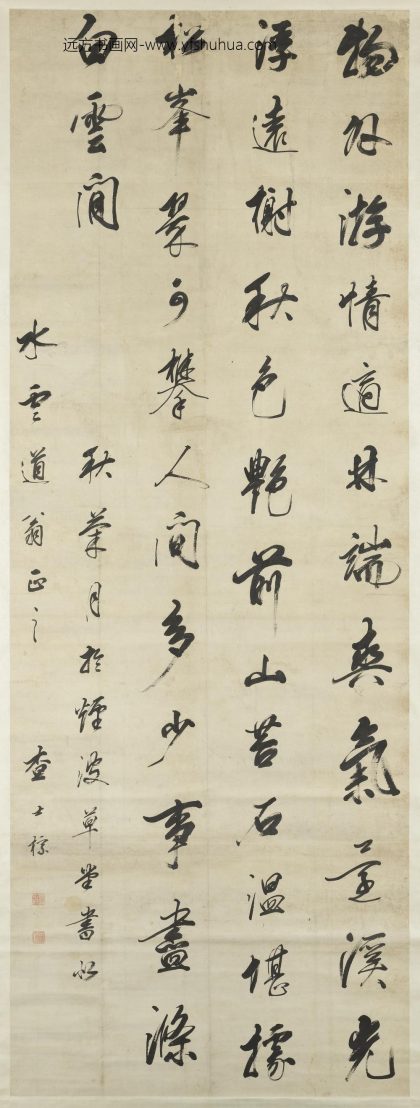 远方书画网-www.yfshuhua.com
物外游情適林端爽氣還溪光
浮遠榭秋色艷前山苔石溫堪據
松峯翠可攀人間多少事盡滌
白雲間
秋菊月於煙波草堂書似
水雲道翁正之 查士標